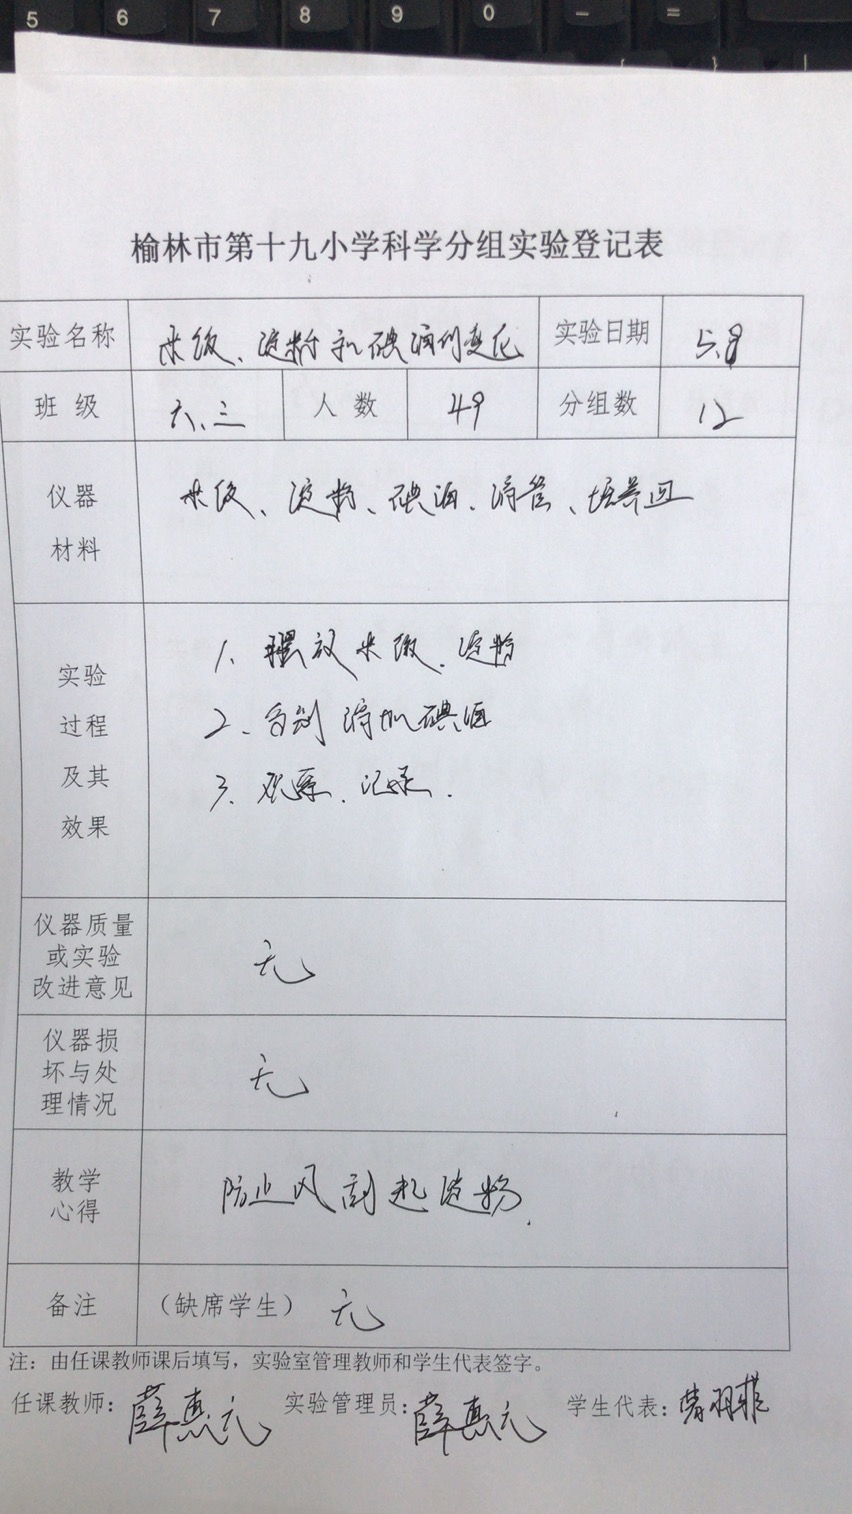 5 6 7 8 9 0 - =
榆林市第十九小学科学分组实验登记表
实验名称 米饭、淀粉和碘酒的变化 实验日期 5.8
班 级 六.三 人 数 49 分组数 12
仪器 米饭、淀粉、碘酒、滴管、培养皿
材料
实验 1、摆放米饭、淀粉
过程 2、分别滴加碘酒
及其 3、观察、记录.
效果
仪器质量
或实验 无
改进意见
仪器损
坏与处 无
理情况
教学 防止风刮起淀粉.
心得
备注 (缺席学生) 无
注：由任课教师课后填写，实验室管理教师和学生代表签字。
任课教师：薛惠元 实验管理员：薛惠元 学生代表：